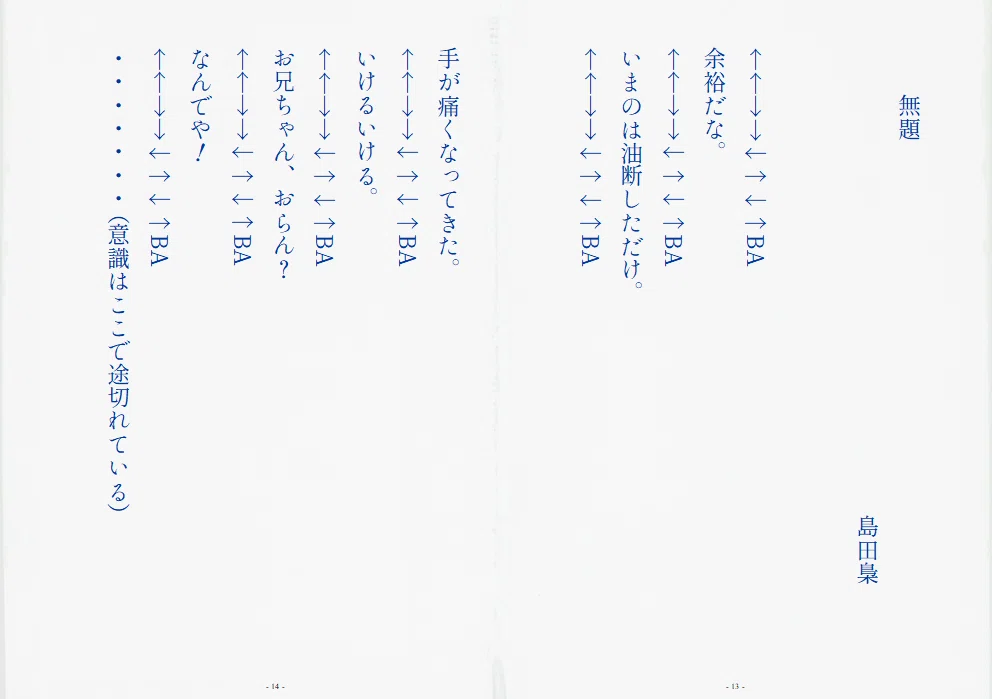 無題
島田梟
↑↑↓↓←→←→BA
余裕だな。
↑↑↓↓←→←→BA
いまのは油断しただけ。
↑↑↓↓←→←→BA
- 13 -
手が痛くなってきた。
↑↑↓↓←→←→BA
いけるいける。
↑↑↓↓←→←→BA
お兄ちゃん、おらん?
↑↑↓↓←→←→BA
なんでや!
↑↑↓↓←→←→BA
・・・・・・・(意識はここで途切れている)
- 14 -